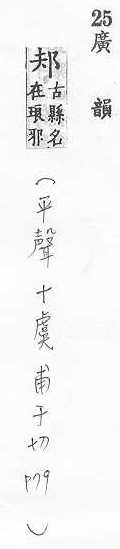 25廣韻
邞古縣名
在琅邪
(平聲十虞甫于切P79)